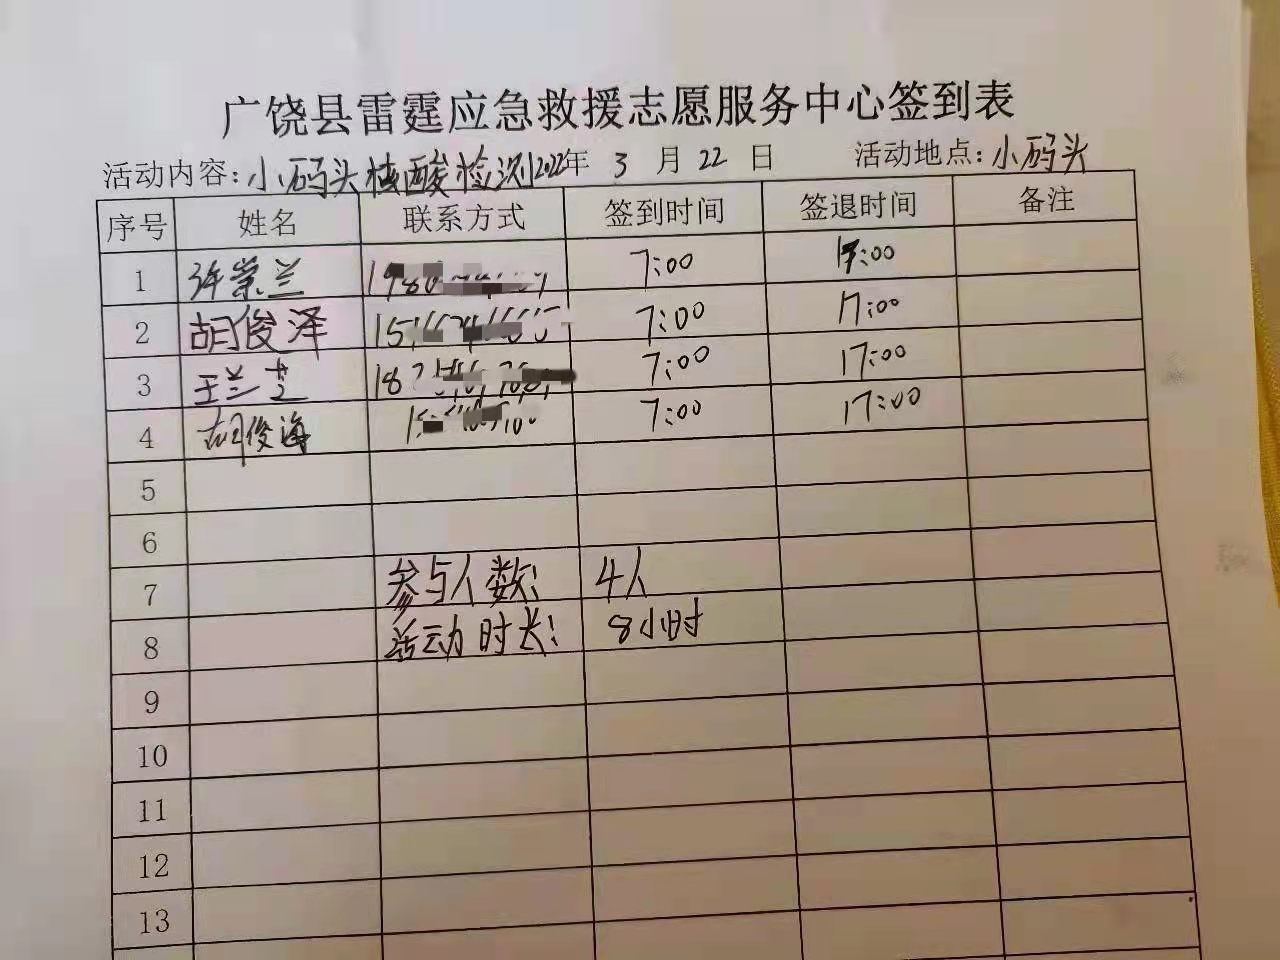 广饶县雷霆应急救援志愿服务中心签到表
活动内容:小码头核酸检测2022年 3 月 22 日 活动地点:小码头
序号 姓名 联系方式 签到时间 签退时间 备注
1 许崇兰 7:00 17:00
2 胡俊泽 7:00 17:00
3 王兰芝 7:00 17:00
4 胡俊海 7:00 17:00
5
6
7 参与人数: 4人
8 活动时长: 8小时
9
10
11
12
13